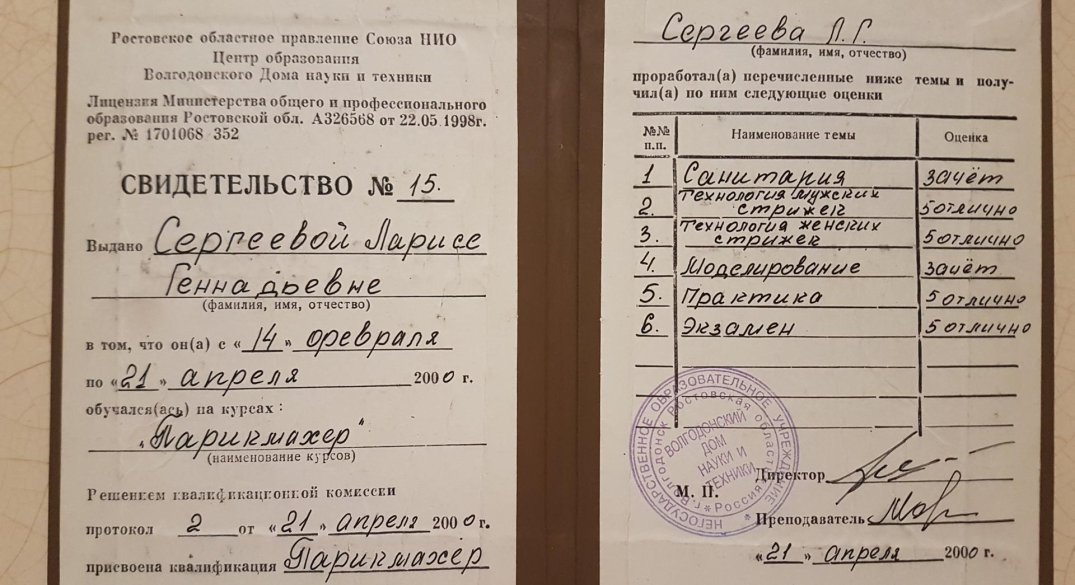 Ростовское областное правление Союза НИО
Центр образования
Волгодонского Дома науки и техники
Лицензия Министерства общего и профессионального
образования Ростовской обл. А326568 от 22.05.1998г.
рег. № 1701068 352
СВИДЕТЕЛЬСТВО № 15.
Выдано Сергеевой Ларисе
Геннадьевне
(фамилия, имя, отчество)
в том, что он(а) с «14» февраля
по «21» апреля 2000 г.
обучался(ась) на курсах:
"Парикмахер"
(наименование курсов)
Решением квалификационной комиссии
протокол 2 от «21» апреля 2000г.
присвоена квалификация Парикмахер
Сергеева Л.Г.
(фамилия, имя, отчество)
проработал(а) перечисленные ниже темы и полу-
чил(а) по ним следующие оценки
№№ п.п. Наименование темы Оценка
1 Санитария зачёт
2. Технология мужских стрижек 5 отлично
3. Технология женских стрижек 5 отлично
4. Моделирование зачёт
5. Практика 5 отлично
6. Экзамен 5 отлично
НЕГОСУДАРСТВЕННОЕ ОБРАЗОВАТЕЛЬНОЕ УЧРЕЖДЕНИЕ
г. Волгодонск Ростовская область * Россия *
ВОЛГОДОНСКИЙ
ДОМ
НАУКИ И
ТЕХНИКИ
Директор
М. П.
Преподаватель
«21» апреля 2000 г.